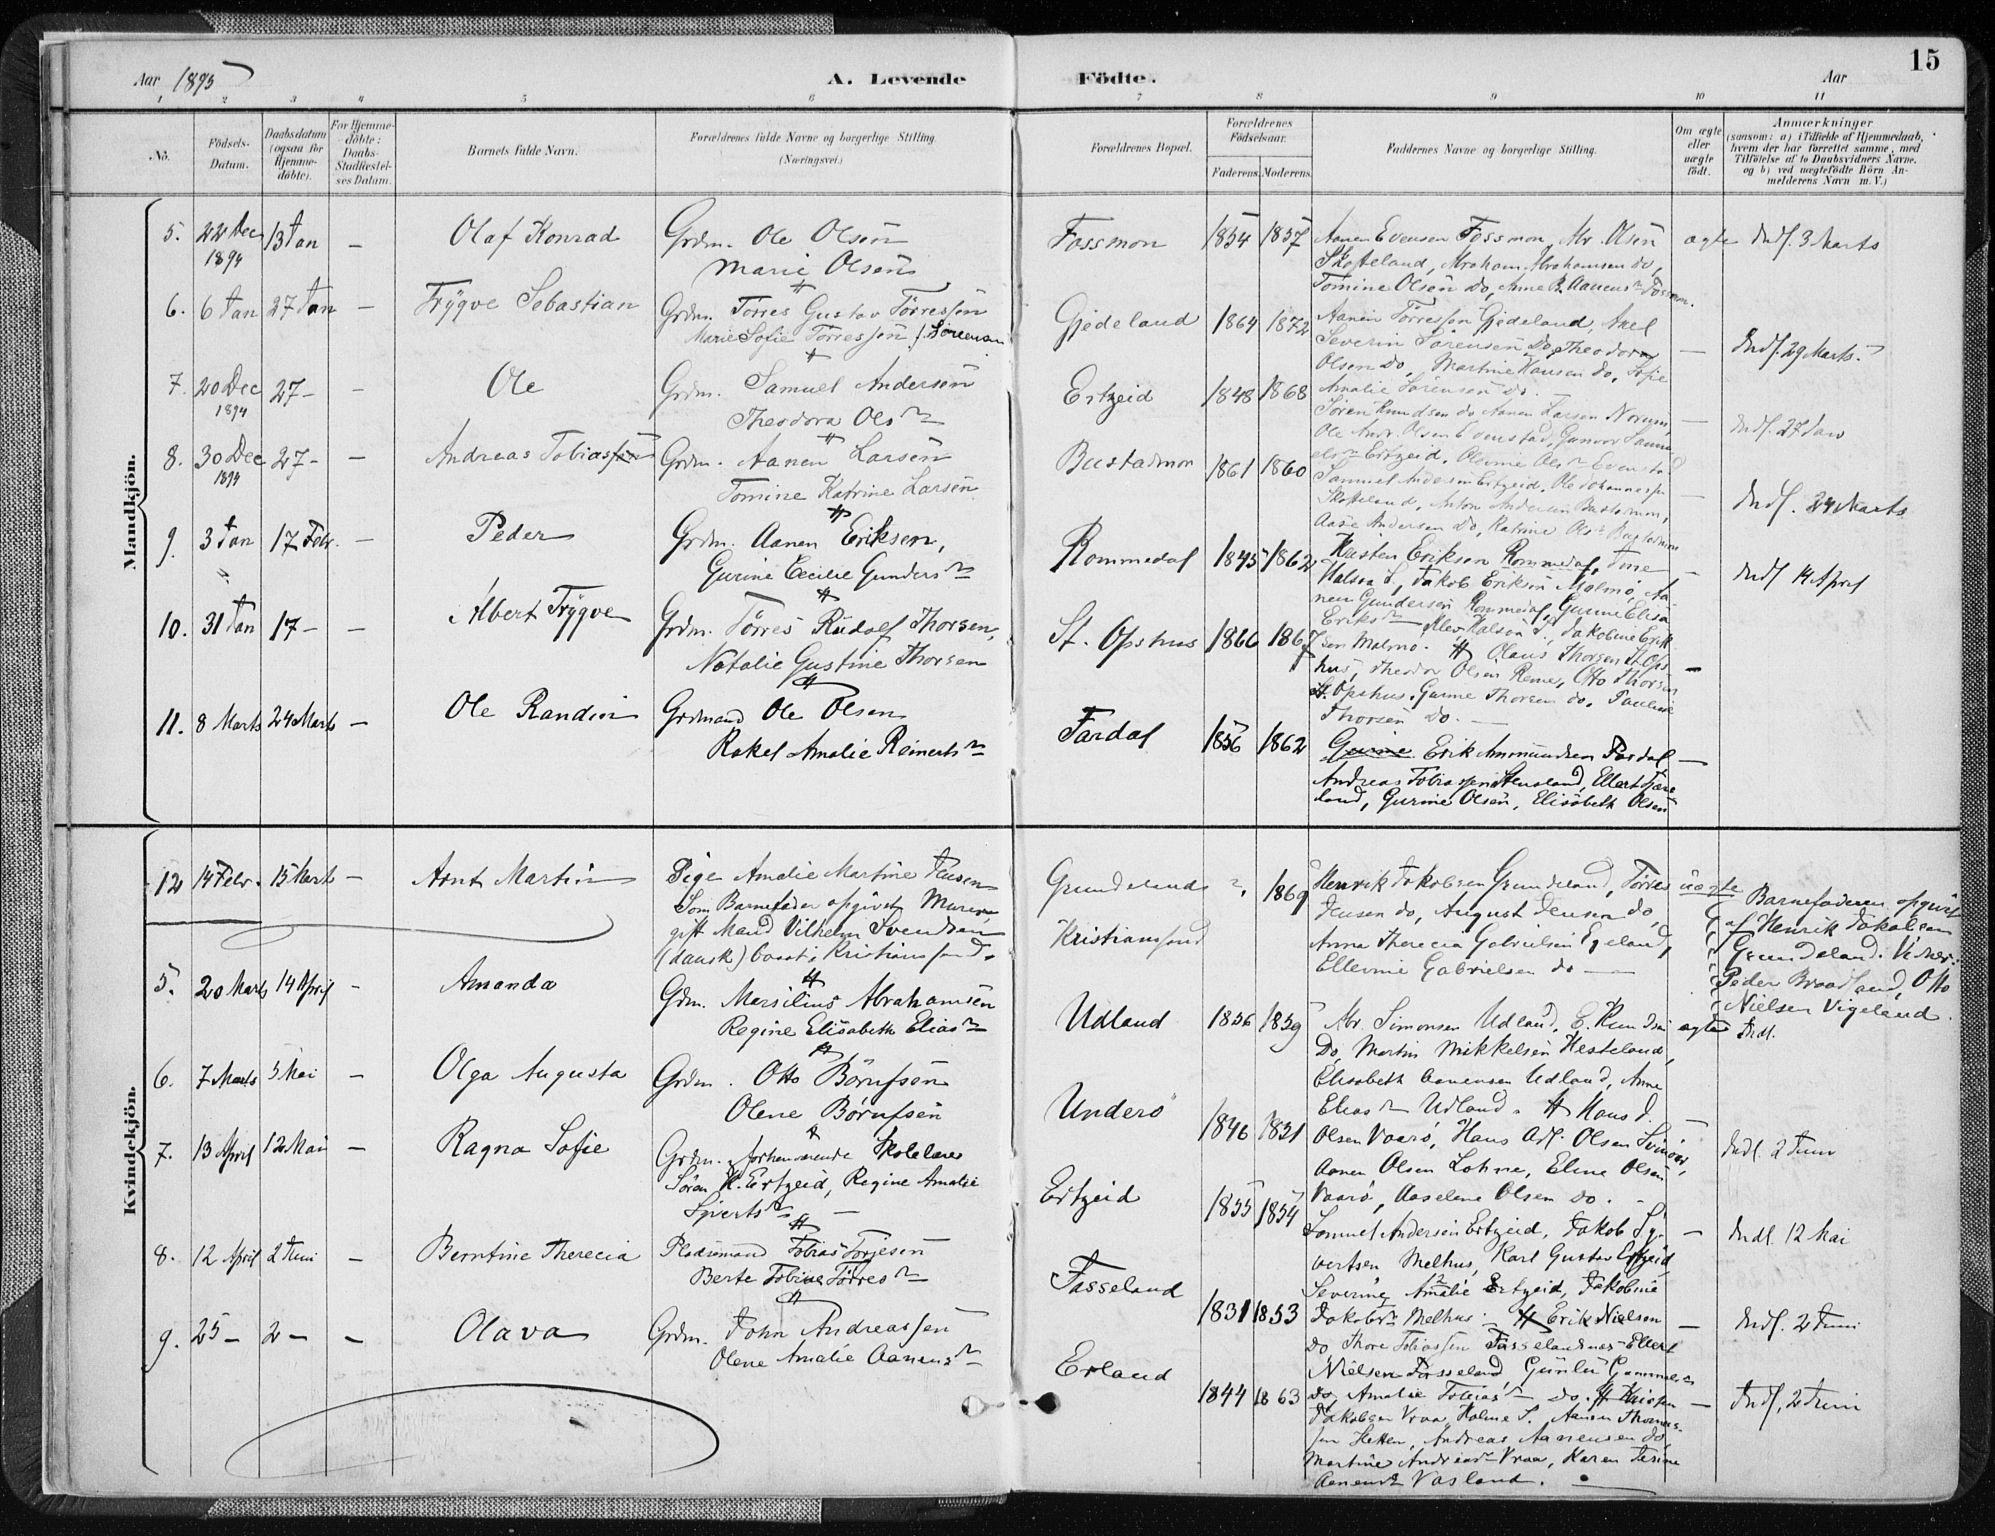 Aar 1895
A. Levende
Födte.
Aar
15
1 2 3 4 5 6 7 8 9 10 11
No.
Födsels-
Datum.
Daabsdatum
(ogsaa for
Hjemme-
döbte).
For Hjemme-
döbte:
Daabs-
Stadfæstel-
ses Datum.
Barnets fulde Navn.
Forældrenes fulde Navne og borgerlige Stilling.
(Næringsvei.)
Forældrenes Bopæl.
Forældrenes
Födselsaar.
Faderens. Moderens.
Faddernes Navne og borgerlige Stilling.
Om ægte
eller
uægte
födt.
Anmærkninger
(saasom: a) i Tilfælde af Hjemmedaab,
hvem der har forrettet samme, med
Tilföielse af to Daabsvidners Navne.
og b) ved uægtefödte Börn An-
melderens Navn m. V.)
Mandkjön.
5. 22 Dec 1894 13 Jan – Olaf Konrad
Grdm. Ole Olsen
Marie Olsen
Fossmon 1854 1857
Aanen Evensen Fossmon, Abr. Olsen
Skofteland, Abraham Abrahamsen do,
Tomine Olsen do, Anne B. Aanens Fossmon.
ægte Indf. 3 Marts
6. 6 Jan 27 Jan – Trÿgve Sebastian
Grdm. Tørres Gustav Tørressen
Marie Sofie Tørressen f. Sørensen
Gjedeland 1864 1872
Aanen Tørressen Gjedeland, Axel
Severin Sørensen do, Theodora
Olsen do, Martine Hansen do, Sofie
Amalie Sørensen do.
– Indf. 29 Marts.
7. 20 Dec 1894 27 – – Ole
Grdm. Samuel Andersen
Theodora Ols
Ertzeid 1848 1868
Søren Knudsen do Aanen Larsen Norum,
Ole Andr. Olsen Evenstad, Gunvor Samu
els Ertzeid, Olevine Ols Evenstad
– Indf. 27 Jan
8. 30 Dec 1894 27 – – Andreas Tobiassen
Grdm. Aanen Larsen
Tomine Katrine Larsen
Bustadmon 1861 1860
Samuel Andersen Ertzeid, Ole Johannessen
Skofteland, Anton Andersen Bustadmon,
Aase Andersen do, Katrine Ols Bustadmon
– Indf. 24 Marts
9. 3 Jan 17 Febr. – Peder
Grdm. Aanen Eriksen,
Gurine Cecilie Gunders
Rommedal 1845 1862
Karsten Eriksen Rommedal, Tine
Halsaa S., Jakob Eriksen Malmø, Aa
nen Gundersen Rommedal, Gurine Elisa
Eriks Halsaa S., Jakobine Erik
sen Malmø.
– Indf 14 April
10. 31 Jan 17 – – Albert Trÿgve
Grdm. Tørres Rudolf Thorsen,
Natalie Gustine Thorsen
St. Opshus 1866 1867
Olaus Thorsen St. Ops
hus, Theodor Olsen Reme, Otto Thorsen
St. Opshus, Gurine Thorsen do, Pauline
Thorsen do. –
–
11. 8 Marts 24 Marts – Ole Randin
Grdmand Ole Olsen
Rakel Amalie Reinerts
Fardal 1856 1862
Gurine Erik Ammundsen Fardal
Andreas Tobiassen Stensland, Ellert Fare
land, Gurine Olsen, Elisabeth Olsen
–
12 14 Febr. 13 Marts – Arnt Martin
Pige Amalie Martine Jensen
Som Barnefader opgivet Murer,
gift Mand Vilhelm Svendsen
(dansk) bosat i Kristianssand.
Grundeland
Kristianssand ". 1869
Henrik Jakobsen Grundeland, Tørres
Jensen do, August Jensen do,
Anna Therecia Gabrielsen Egeland,
Ellevine Gabrielsen do –
uægte
Barnefaderen opgivet
af Henrik Jakobsen
Grundeland. Vidner:
Peder Braadland, Otto
Nielsen Vigeland.
Kvindekjön.
5. 20 Marts 14 April – Amanda
Gdm. Marsilius Abrahamsen
Regine Elisabeth Elias
Udland 1856 1859
Abr. Simonsen Udland, E. Knudsen
do, Martin Mikkelsen Hesteland,
Elisabeth Aanensen Udland, Anne
Elias Udland.
ægte Indf.
6. 7 Marts 5 Mai – Olga Augusta
Grdm. Otto Børufsen
Olene Børufsen
Underø 1846 1851
Hans J.
Olsen Vaarø, Hans Adf. Olsen Svinør,
Aanen Olsen Lohne, Eline Olsen
Vaarø, Aaselene Olsen do.
– Indf. 2 Juni
7. 13 April 12 Mai – Ragna Sofie
Grdm. forhenværende Skolelærer
Søren K. Ertzeid, Regine Amalie
Siverts –
Ertzeid 1855 1854
Samuel Andersen Ertzeid, Jakob Sy
vertsen Melhus, Karl Gustav Ertzeid
Severine Amalie Ertzeid, Jakobine
Jakobs Melhus
– Indf. 12 Mai
8. 12 April 2 Juni – Berntine Therecia
Pladsmand Tobias Torjesen
Berte Tobine Tørres
Fasseland 1831 1853
Erik Nielsen
do Thore Tobiassen Fasselandsnes Ellert
Nielsen Fasseland Gunlu
do, Amalie Tobias do.
– Indf. 2 Juni
9. 25 – 2 – – Olava
Grdm. John Andreassen
Olene Amalie Aanens
Erland 1844 1863
Jakobsen Vraa, Holme S., Aanen Thomas
sen Hetten, Andreas Aanensen do,
Martine Andreas Vraa, Karen Tesine
Aanens Vasland. –
– Indf. 2 Juni